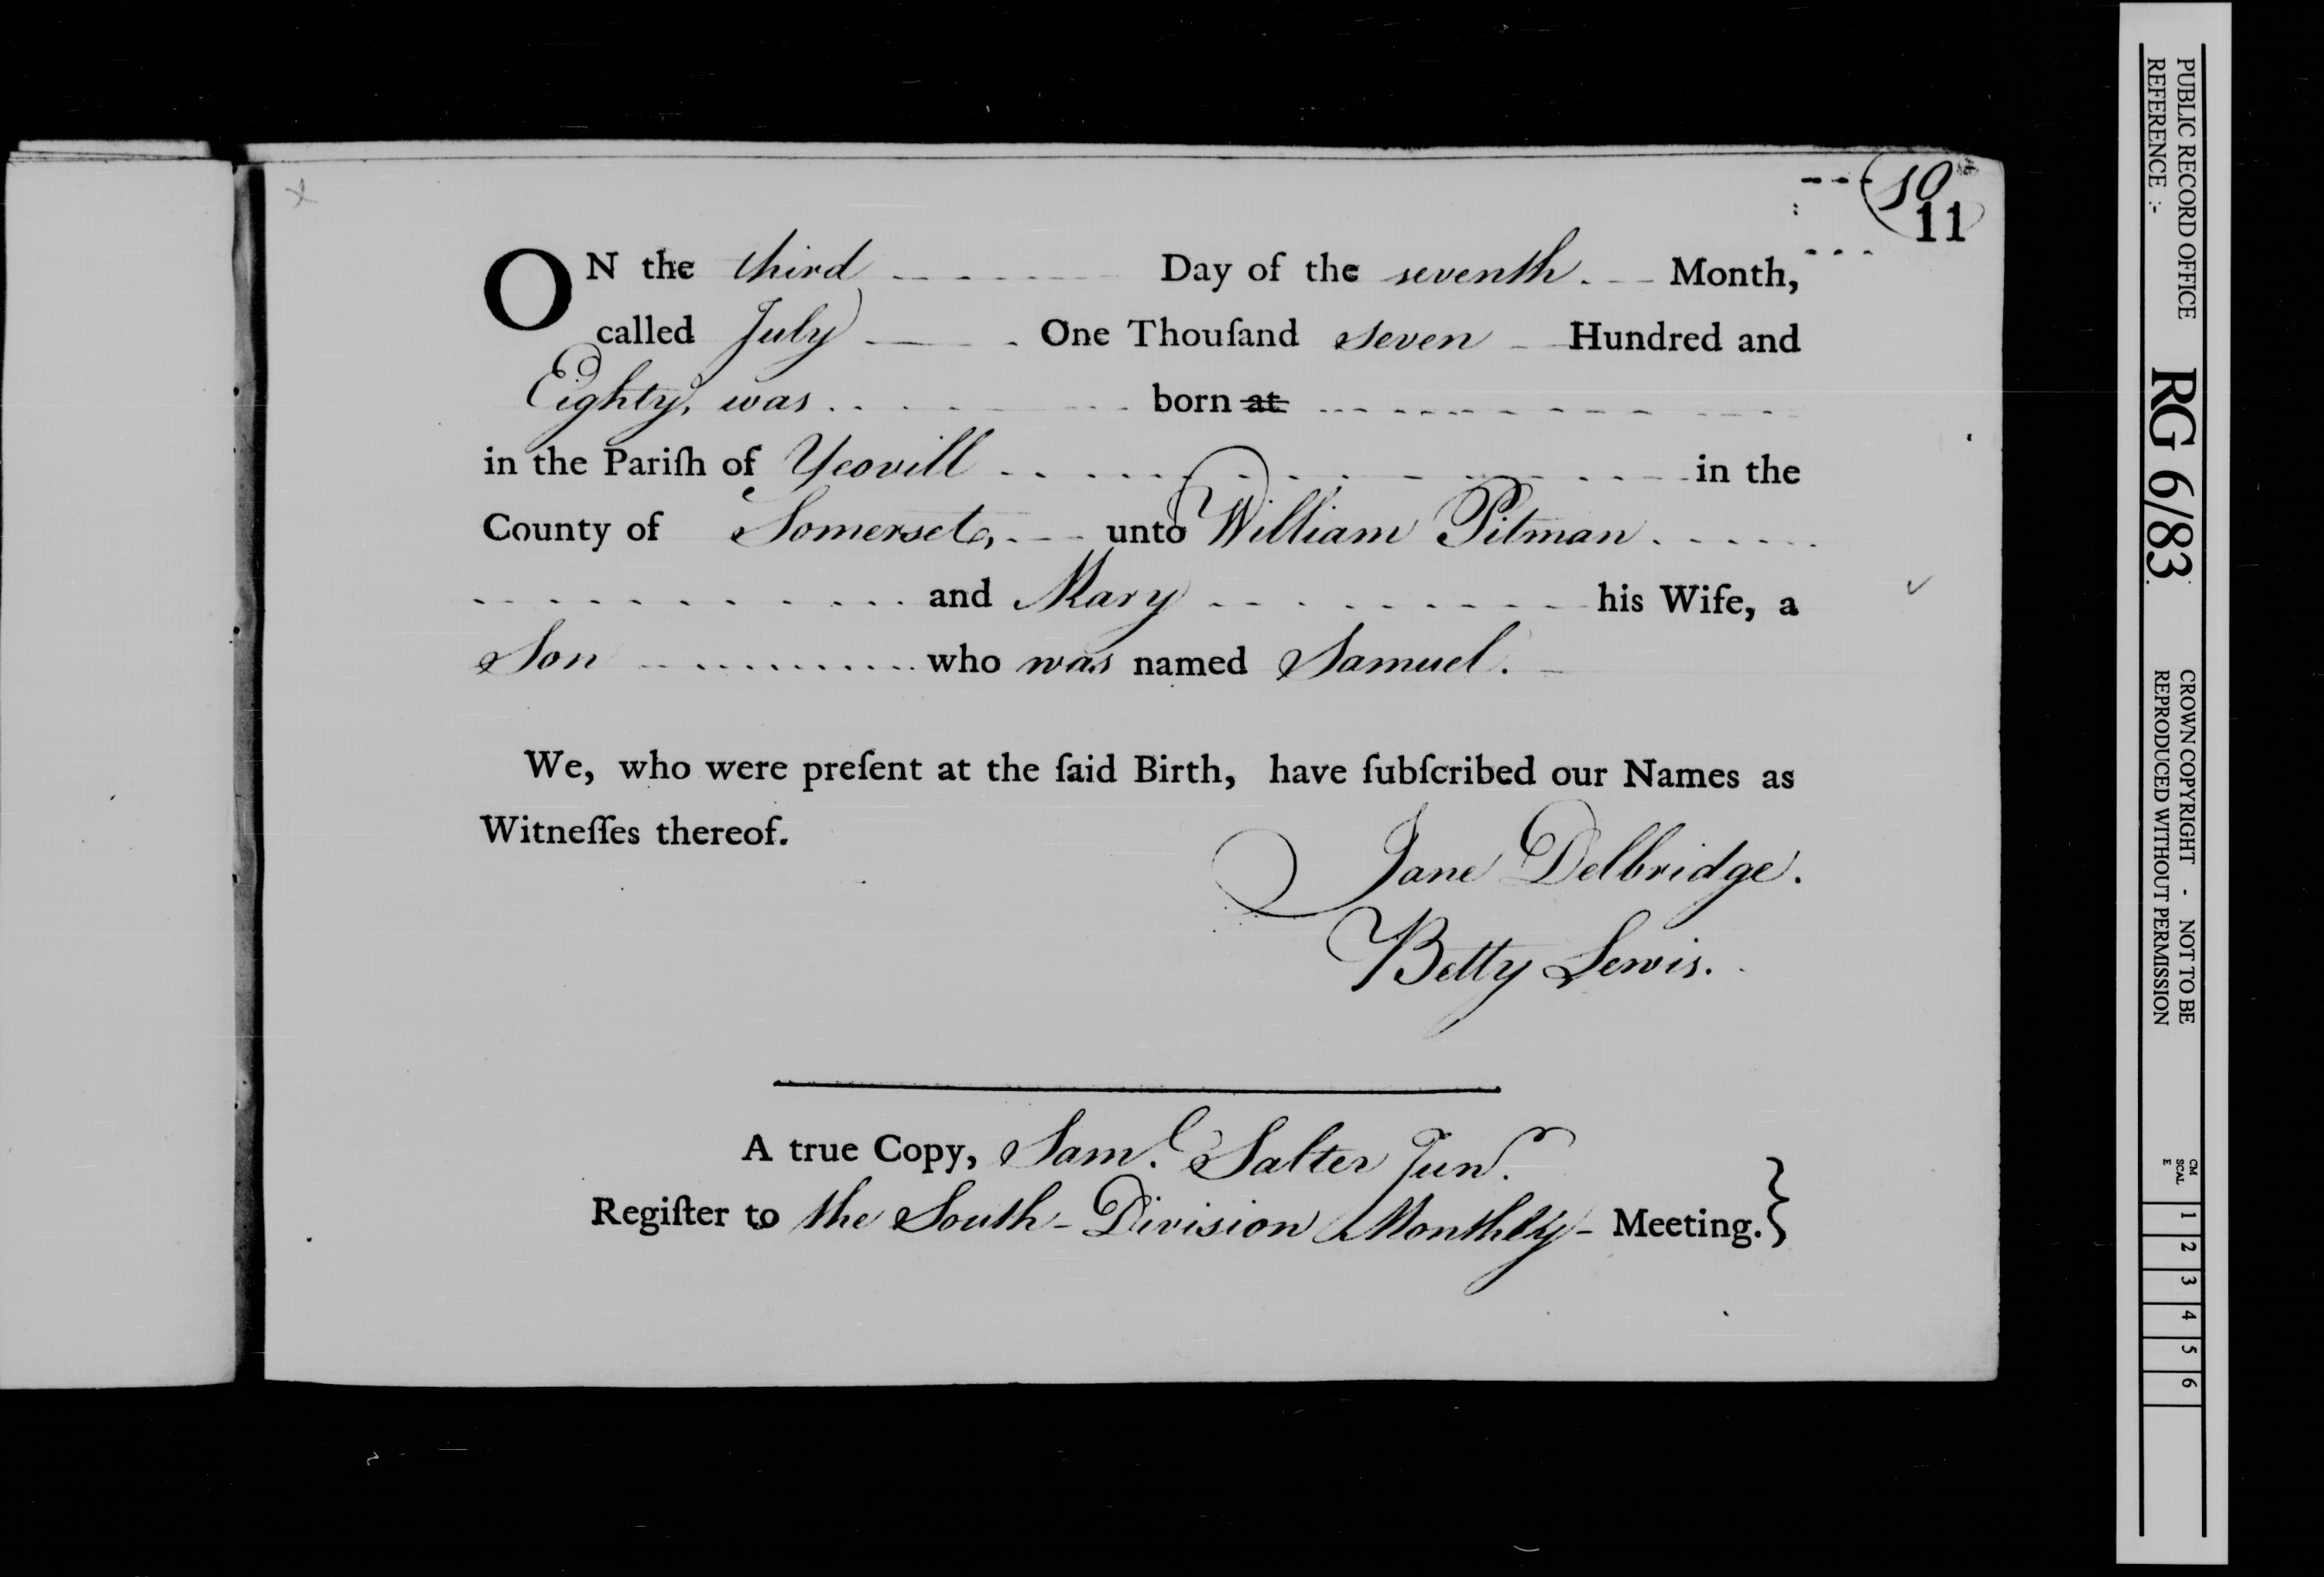 10
11
ON the third Day of the seventh Month,
called July One Thouſand seven Hundred and
Eighty, was born at
in the Pariſh of Yeovill in the
County of Somerset, unto William Pitman
and Mary his Wife, a
Son who was named Samuel.
We, who were preſent at the ſaid Birth, have ſubſcribed our Names as
Witneſſes thereof.
Jane Delbridge.
Betty Lewis.
A true Copy, Saml. Salter Junr.
Regiſter to the South-Division Monthly- Meeting.}
PUBLIC RECORD OFFICE
REFERENCE :-
RG 6/83
CROWN COPYRIGHT - NOT TO BE
REPRODUCED WITHOUT PERMISSION
CM
SCAL
E
1 2 3 4 5 6